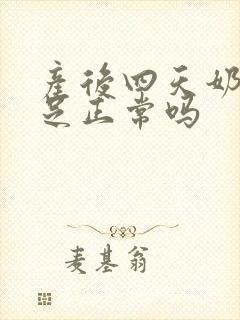 產後四天奶
足正常吗
麦基翁